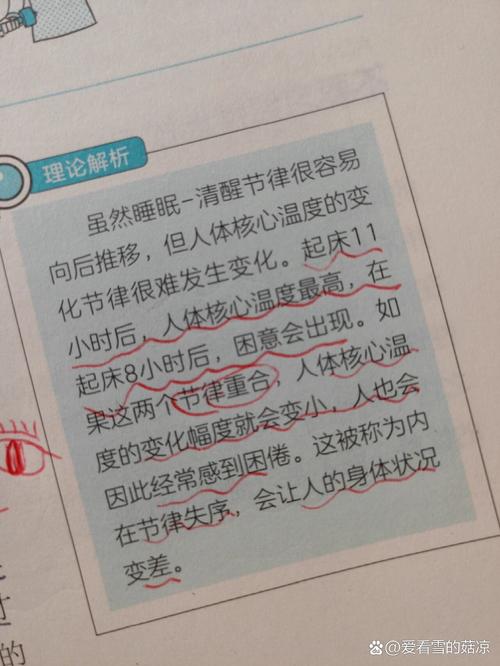 理论解析
虽然睡眠-清醒节律很容易
向后推移，但人体核心温度的变
化节律很难发生变化。起床11
小时后，人体核心温度最高，在
起床8小时后，困意会出现。如
果这两个节律重合，人体核心温
度的变化幅度就会变小，人也会
因此经常感到困倦。这被称为内
在节律失序，会让人的身体状况
变差。
的
@爱看雪的菇凉